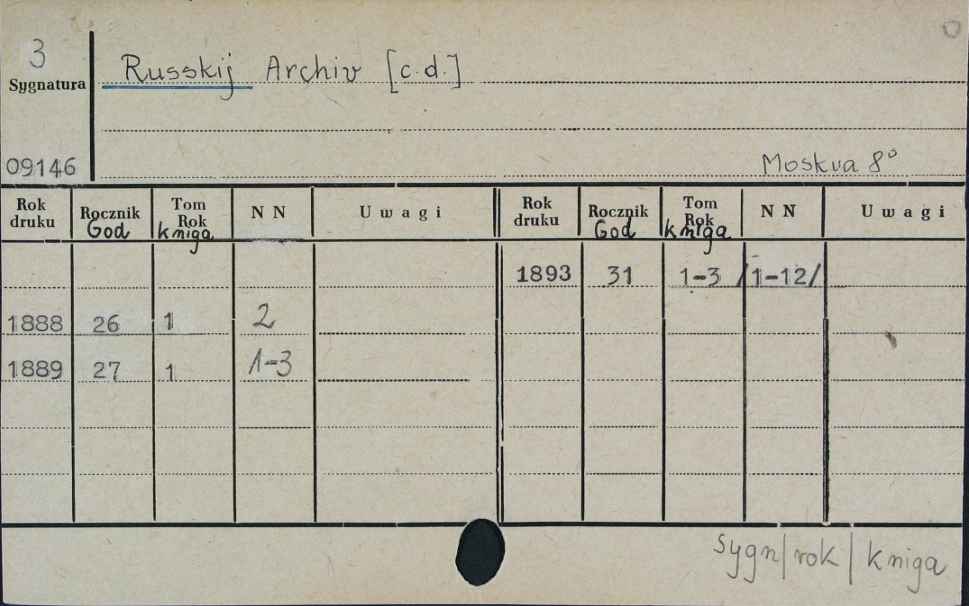 3
Sygnatura
Russkij Archiv [c.d.]
09146
Moskva 8°
Rok druku Rocznik God Tom Rok kniga N N Uwagi Rok druku Rocznik God Tom Rok kniga N N Uwagi
1893 31 1-3 /1-12/
1888 26 1 2
1889 27 1 1-3
sygn/rok/kniga